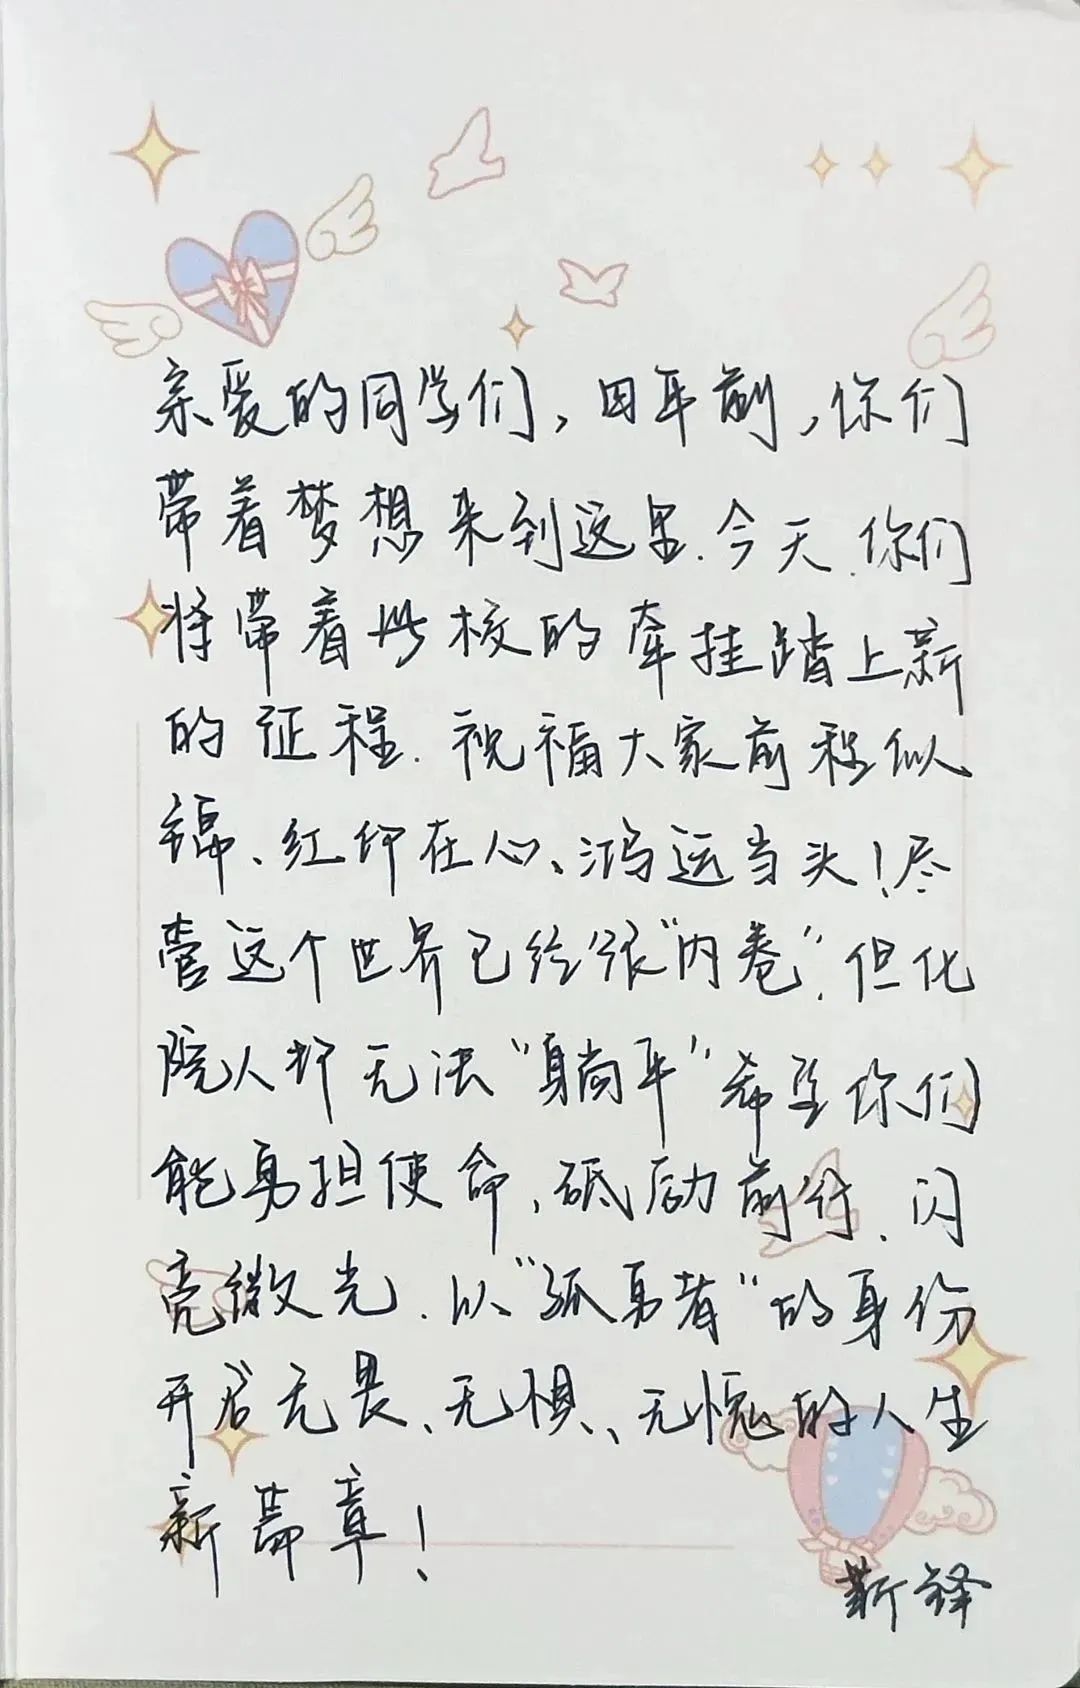 亲爱的同学们,四年前,你们
带着梦想来到这里.今天.你们
将带着母校的牵挂踏上新
的征程.祝福大家前程似
锦、红印在心、鸿运当头!尽
管这个世界已经很“内卷”.但化
院人却无法“躺平”希望你们
能勇担使命,砥砺前行.闪
亮微光.以“孤勇者”的身份
开启无畏、无惧、无愧的人生
新篇章!
靳铎